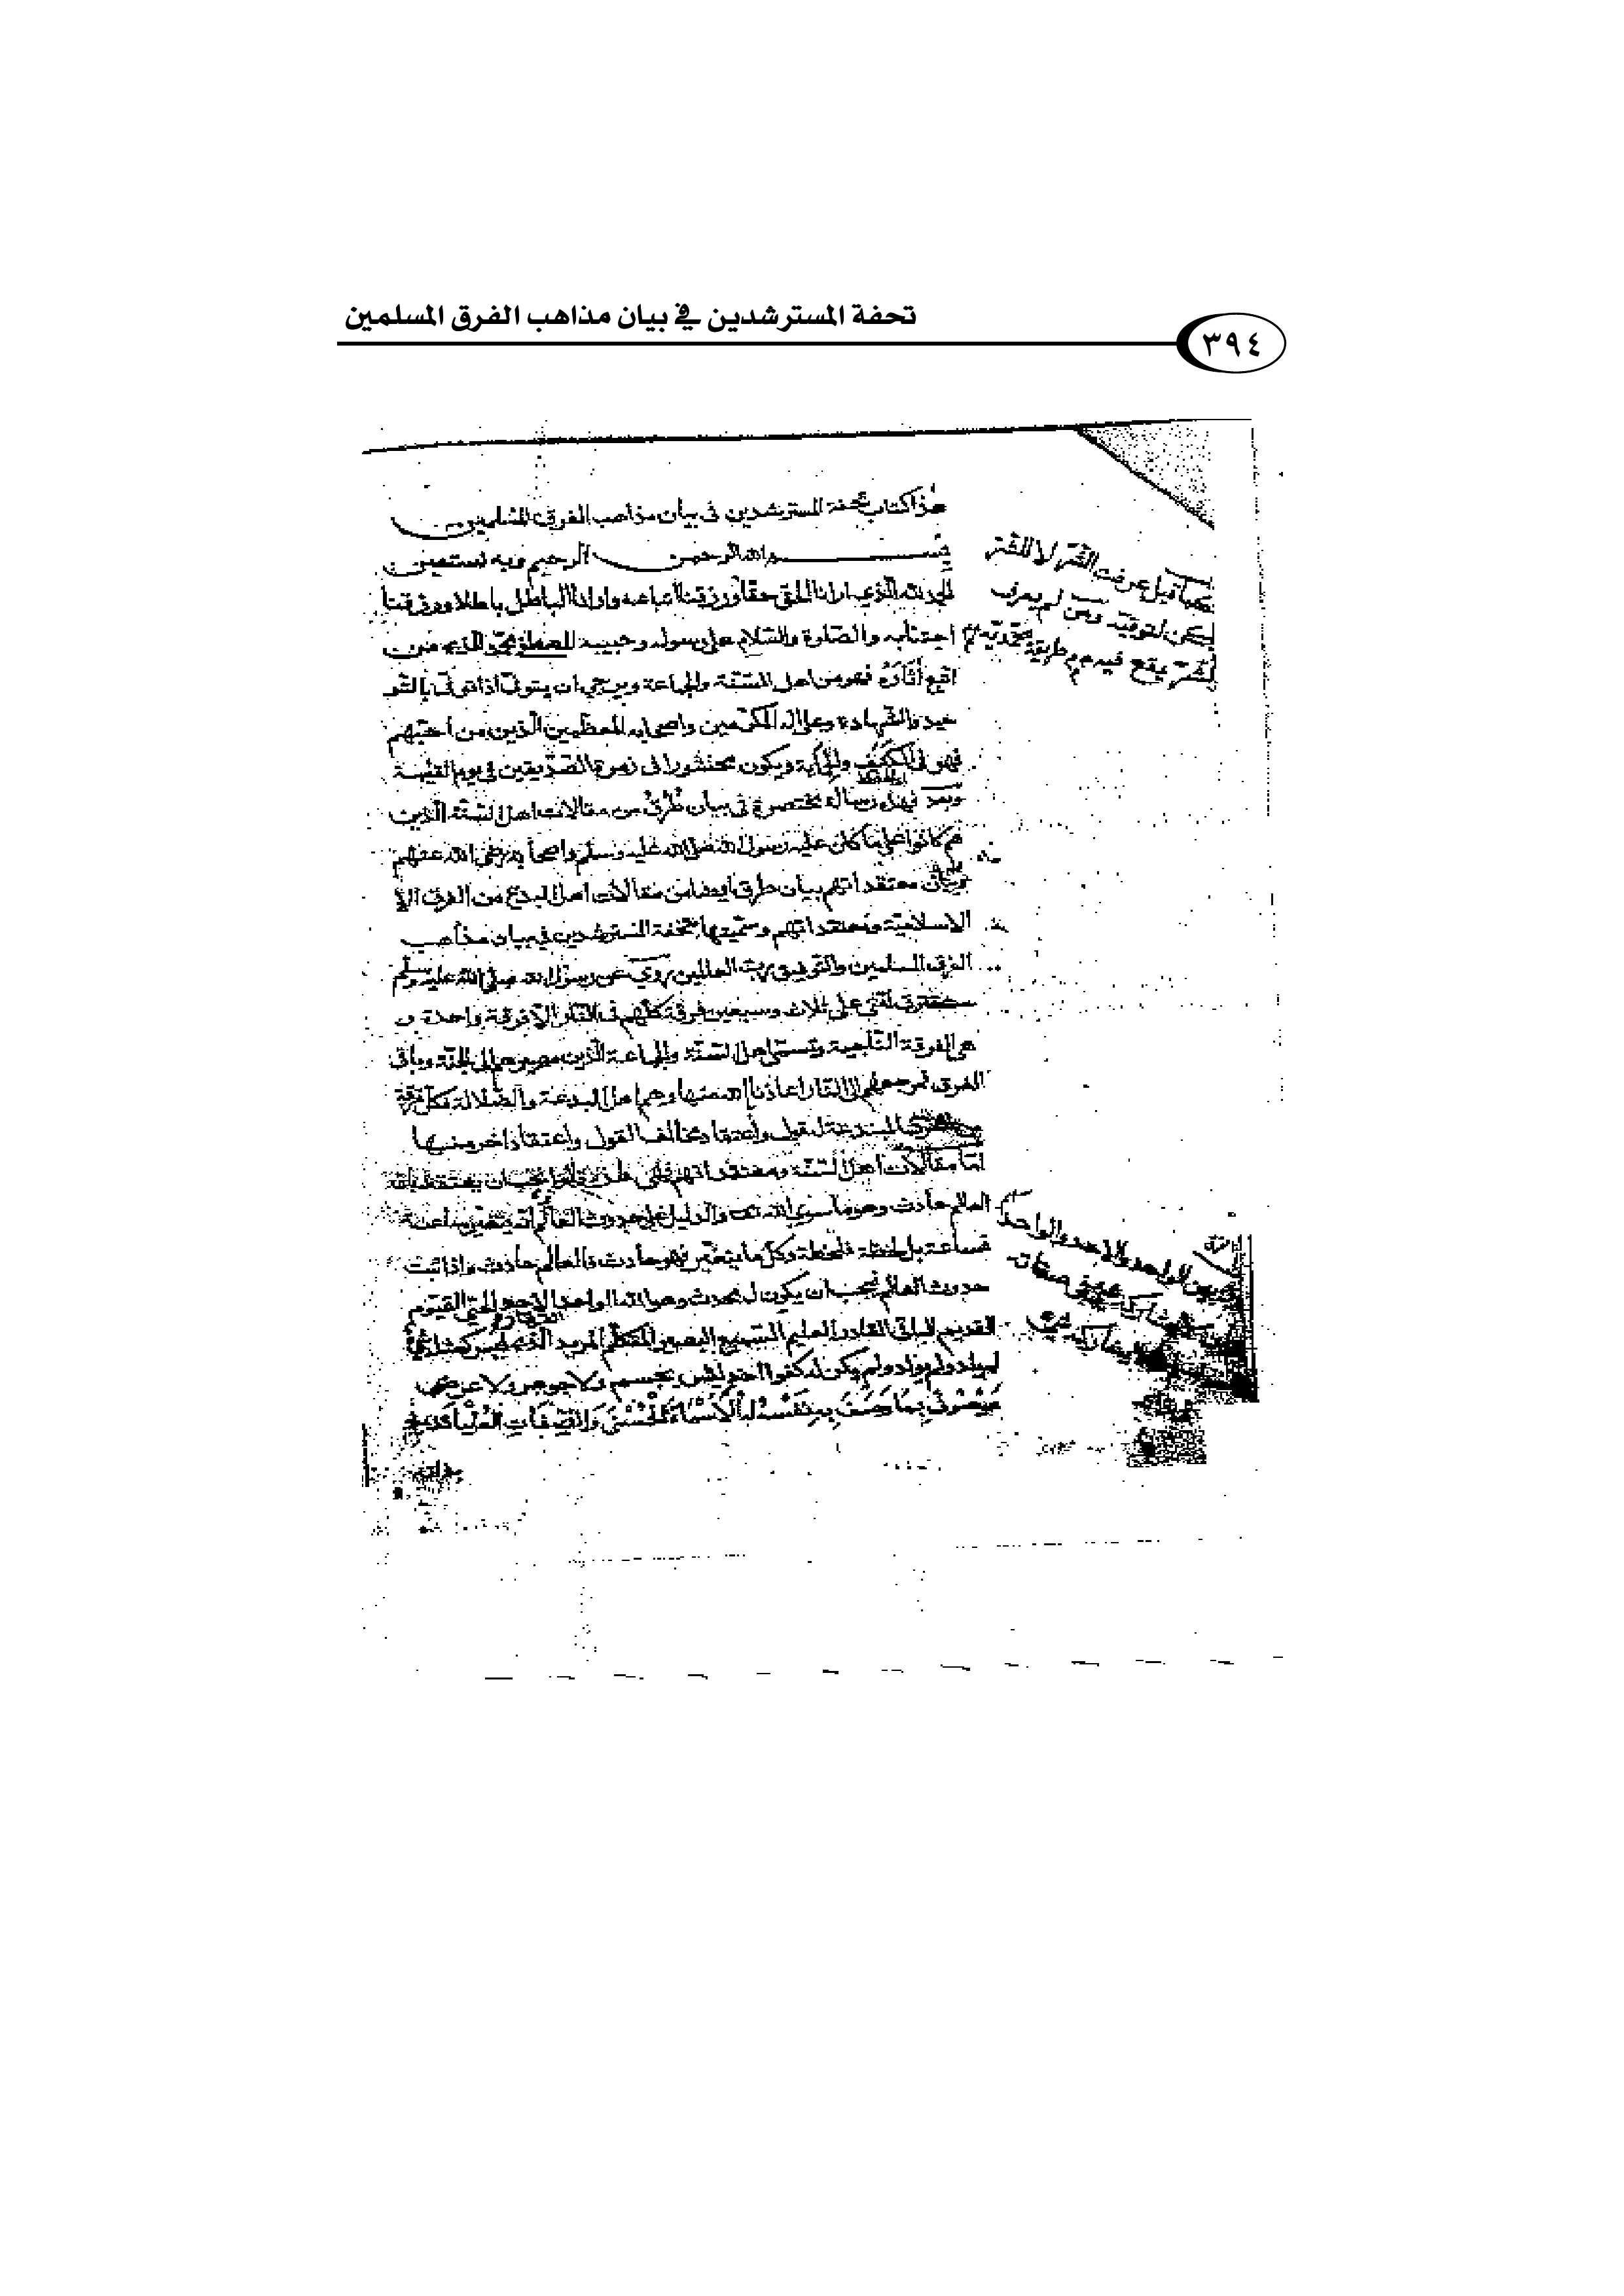 تحفة المسترشدين في بيان مذاهب الفرق المسلمين
٣٩٤
هذا كتاب تحفة المسترشدين فى بيان مذاهب الفرق المسلمين
بسم الله الرحمن الرحيم وبه نستعين
الحمد لله الذى ارانا الحق حقا ورزقنا اتباعه وارانا الباطل باطلا ورزقنا
اجتنابه والصلوة والسلام على رسوله وحبيبه المصطفى محمد الذى من
اتبع آثاره فهو من اهل السنة والجماعة ويرجى ان يتوفى اذا توفى بالتو
حيد والشهادة وعلى اله المكرمين واصحابه المعظمين الذين من احبهم
فهو فى الكنف والحماية ويكون محشورا فى زمرة الصديقين فى يوم القيمة
وبعد فهذه رسالة مختصرة فى بيان طرق من مقالات اهل السنة الذين
هم كانوا على ما كان عليه رسول الله صلى الله عليه وسلم واصحابه رضى الله عنهم
معتقداتهم بيان طرق ايضا من مقالات اهل البدع من الفرق الا
الاسلامية ومعتقداتهم وسميتها تحفة المسترشدين فى بيان مذاهب
الفرق المسلمين والتوفيق برب العالمين روى عن رسول الله صلى الله عليه وسلم
ستفترق امتى على ثلاث وسبعين فرقة كلهم فى النار الا فرقة واحدة و
هى الفرقة الناجية وتسمى اهل السنة والجماعة الذين مصيرهم الى الجنة وباقى
الفرق مرجعهم الى النار اعاذنا الله منها وهم اهل البدعة والضلالة فكل فرقة
المبتدعة له قول واعتقاد مخالف القول واعتقاد اخر ومنها
اما مقالات اهل السنة ومعتقداتهم فهى قالوا يجب ان يعتقد
العالم حادث وهو ما سوى الله تعالى والدليل على حدوث العالم انه يتغير ساعة
فساعة بل لحظة فلحظة وكل ما يتغير فهو حادث فالعالم حادث واذا ثبت
حدوث العالم فيجب ان يكون له محدث وهو الله الواحد الاحد الحى القيوم
القديم الباقى القادر العليم السميع البصير المتكلم المريد ليس كمثله شئ
لم يلد ولم يولد ولم يكن له كفوا احد وليس بجسم ولا جوهر ولا عرض
موصوف بما وصف به نفسه له الاسماء الحسنى والصفات العليا
قيل عرفت الشر لا للشر
لكن لتوقيه ومن لم يعرف
الشر يقع فيه
بين الواحد والاحد